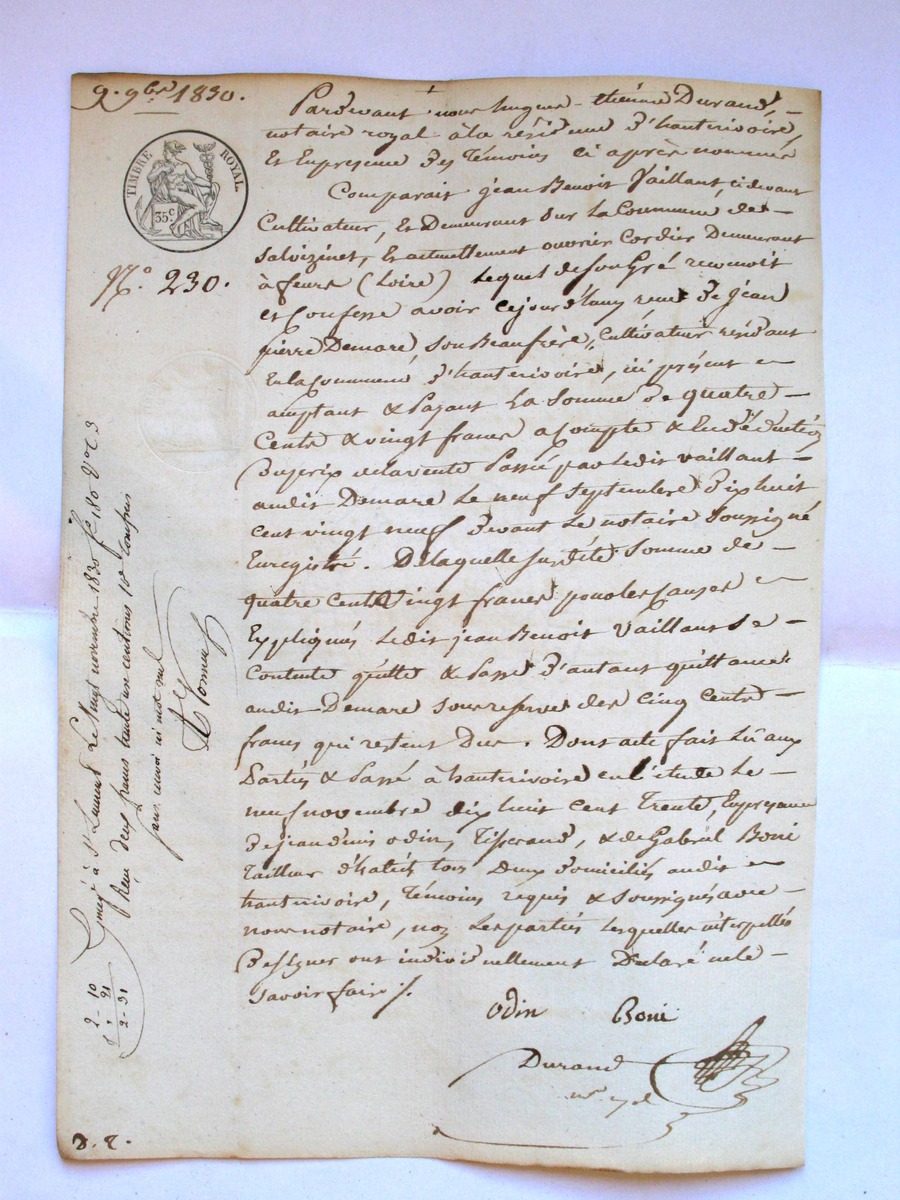 9. 9bre 1830.
TIMBRE ROYAL
35.c
N.o 230.
Pardevant nous hugues-étienne Durand,
notaire royal à la résidence d'hauterivoire,
Et En presence des Témoins ci après nommés
Comparait jean Benoit Vaillant, ci devant
Cultivateur, Et Demeurant sur la Commune de
Salvizinet, Et actuellement ouvrier Cordier Demeurant
à feurs (Loire) Lequel de son Gré reconnoit
et Confesse avoir cejourd'huy reçu de jean
pierre Demare, son Beaufrère, Cultivateur résidant
En la Commune d'hauterivoire, ici présent
acceptant & Payant La Somme de quatre
Cents & vingt francs acompte & En déduction
Du prix de la vente Passée par Ledit Vaillant
audit Demare Le neuf Septembre dix huit
cent vingt neuf devant Le notaire soussigné
Enregistré. De laquelle susdite Somme de
quatre Cents Vingt francs pour les Causes
Expliquées Ledit jean Benoit Vaillant se
Contente quitte & Passe d'autant quittance
audit Demare sous reserve des Cinq Cents
francs qui restent Dus. Dont acte fait Lû aux
Parties & Passé à hauterivoire en l'étude Le
neuf novembre dix huit cent Trente, En présence
De jean Denis odin, Tisserand, & de Gabriel Boni
Tailleur d'habits tous Deux Domiciliés audit
hauterivoire, Témoins requis & Soussignés avec
nous notaire, non Les parties Lesquelles interpellés
De signer ont individuellement Déclaré ne le
savoir faire ./.
odin Boni
Durand
nre ryal
Enregé à St Laurent Le Neuf novembre 1830 fo 180 Vo C 3
Reçu deux francs trente un centimes 10e Compris
sans renvoi ni mot nul
2-10
21
2-31